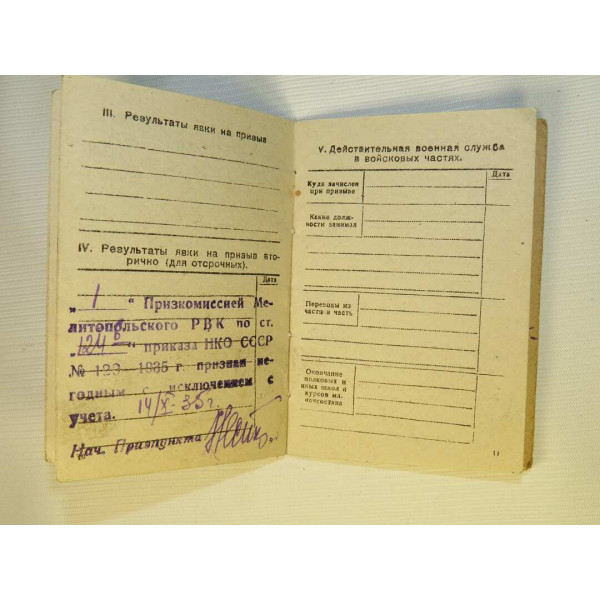 III. Результаты явки на призыв
IV. Результаты явки на призыв вто-
рично (для отсрочных).
Дата
„ 1 “ Призкомиссией Ме-
литопольского РВК по ст.
„124 в“ приказа НКО СССР
№ 123—1935 г. признан не-
годным с исключением с
учета. 14/X-35г.
Нач. Призпункта
V. Действительная военная служба
в войсковых частях.
Дата
Куда зачислен
при призыве
Какие долж-
ности занимал
Переводы из
части в часть
Окончание
полковых и
иных школ и
курсов мл.
начсостава
11